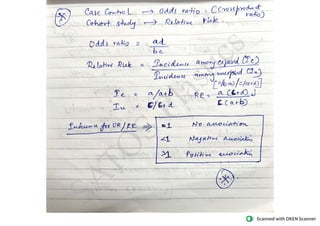 Case Control → Odds ratio. (Crossproduct ratio)
Cohort study. → Relative risk.
Odds ratio = ad/bc
Relative Risk = Incidence among exposed (Ie) / Incidence among unexposed (Iu)
[a/(a+b)/c/(c+d)]
Ie = a/a+b RR = a(c+d) / c(a+b)
Iu = c/c+d
for OR/RR ⇒ =1 No association
<1 Negative association
>1 Positive association
Scanned with OKEN Scanner